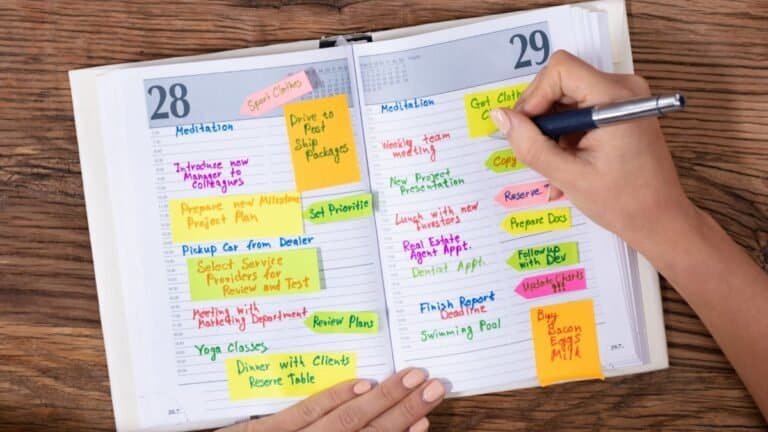 28
Sport Clothes
Meditation
Drive to
Post
Ship
Packages
Introduce new
Manager to
Colleagues
Prepare new Milestone
Project Plan
Set Prioritie
Pickup Car from Dealer
Select Service
Providers for
Review and Test
Meeting with
Marketing Department
Review Plans
Yoga Classes
Dinner with Clients
Reserve Table
29
Meditation
Got Cloth
Weekly team
meeting
Copy
New Project
Presentation
Reserve
Lunch with new
investors
Prepare Docs
Real Estate
Agent Appt.
Followup
with Dev
Dentist Appt.
Update Charts
!!!
Finish Report
Deadline
Swimming Pool
Buy
Bacon
Eggs
Milk